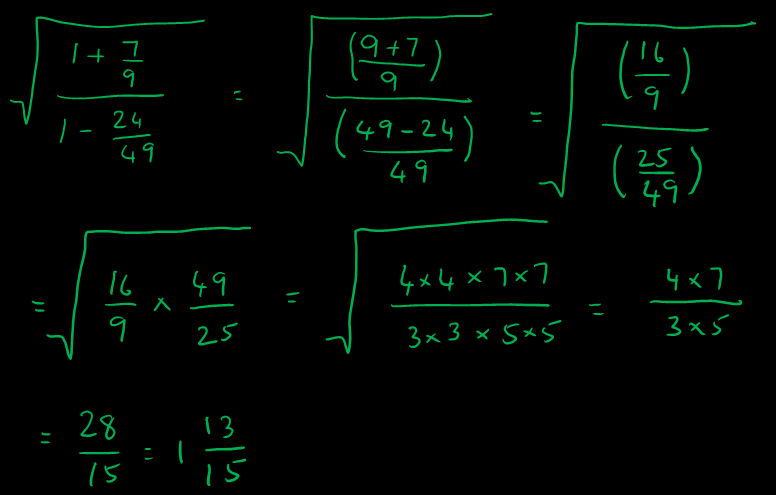 √((1 + 7/9)/(1 - 24/49)) = √(((9+7)/9)/((49-24)/49)) = √((16/9)/(25/49))
= √(16/9 × 49/25) = √((4×4×7×7)/(3×3×5×5)) = (4×7)/(3×5)
= 28/15 = 1 13/15